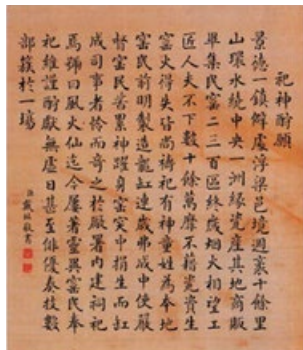 祀神酬願
景德一鎮僻處浮梁邑境週裏十餘里
山環水繞中央一洲緣瓷產其地商販
畢集民窰二三百區終歲烟火相望工
匠人夫不下數十餘萬靡不藉瓷資生
窰火得失皆尚禱祀有神童姓為本地
窰民前明製造龍缸連歲弗成中使嚴
督窰民苦累神躍身窰突中捐生而缸
成司事者憐而奇之於厰署內建祠祀
焉號曰風火仙迄今屢著靈異窰民奉
祀維謹酬獻無虛日甚至俳優奏技數
部簇於一場
臣戴臨敬書